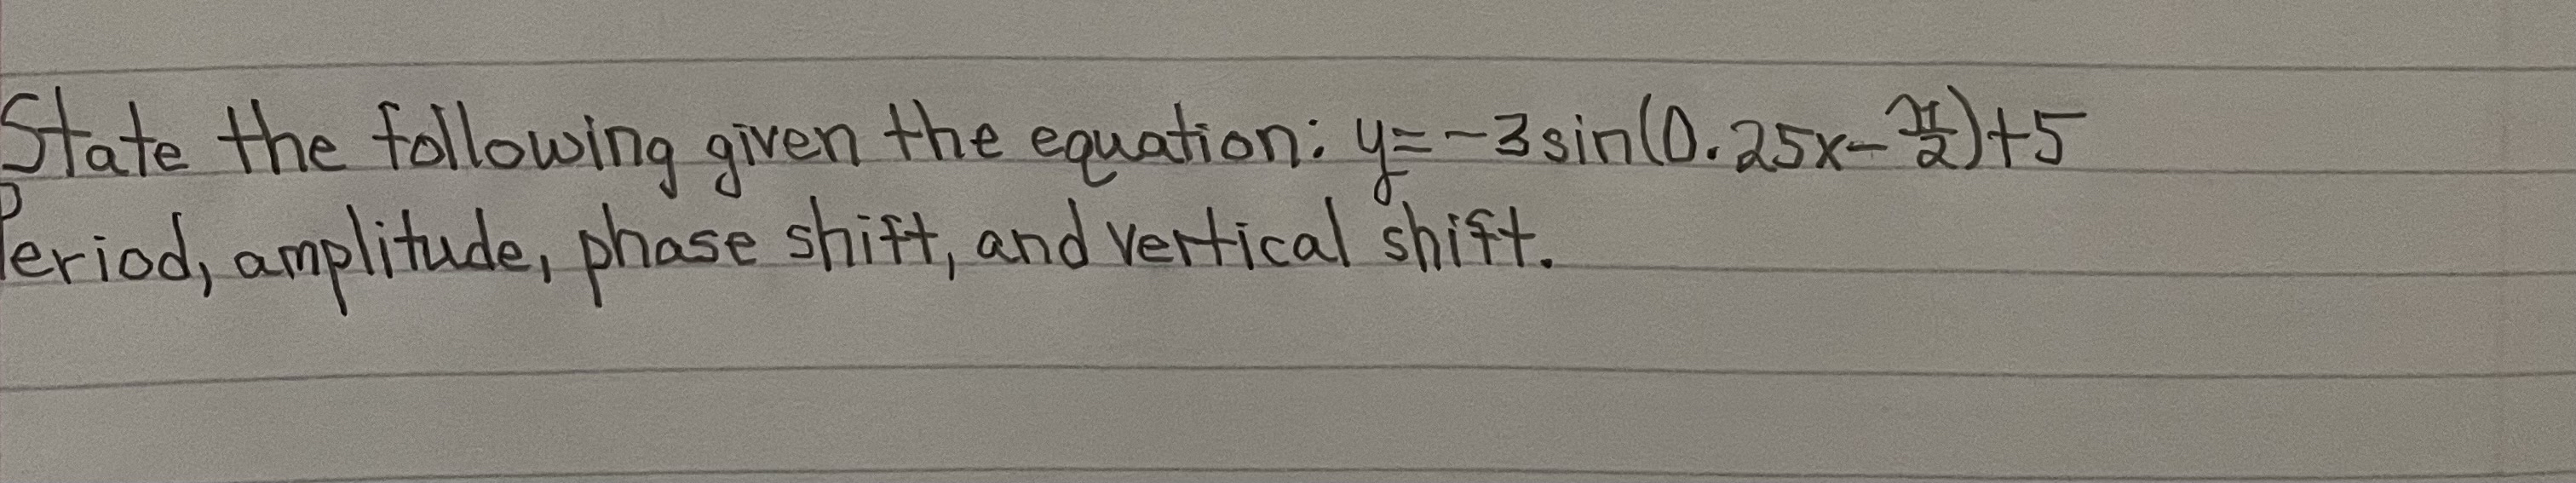 State the following given the equation: y=-3sin(0.25x-π/2)+5
Period, amplitude, phase shift, and vertical shift.